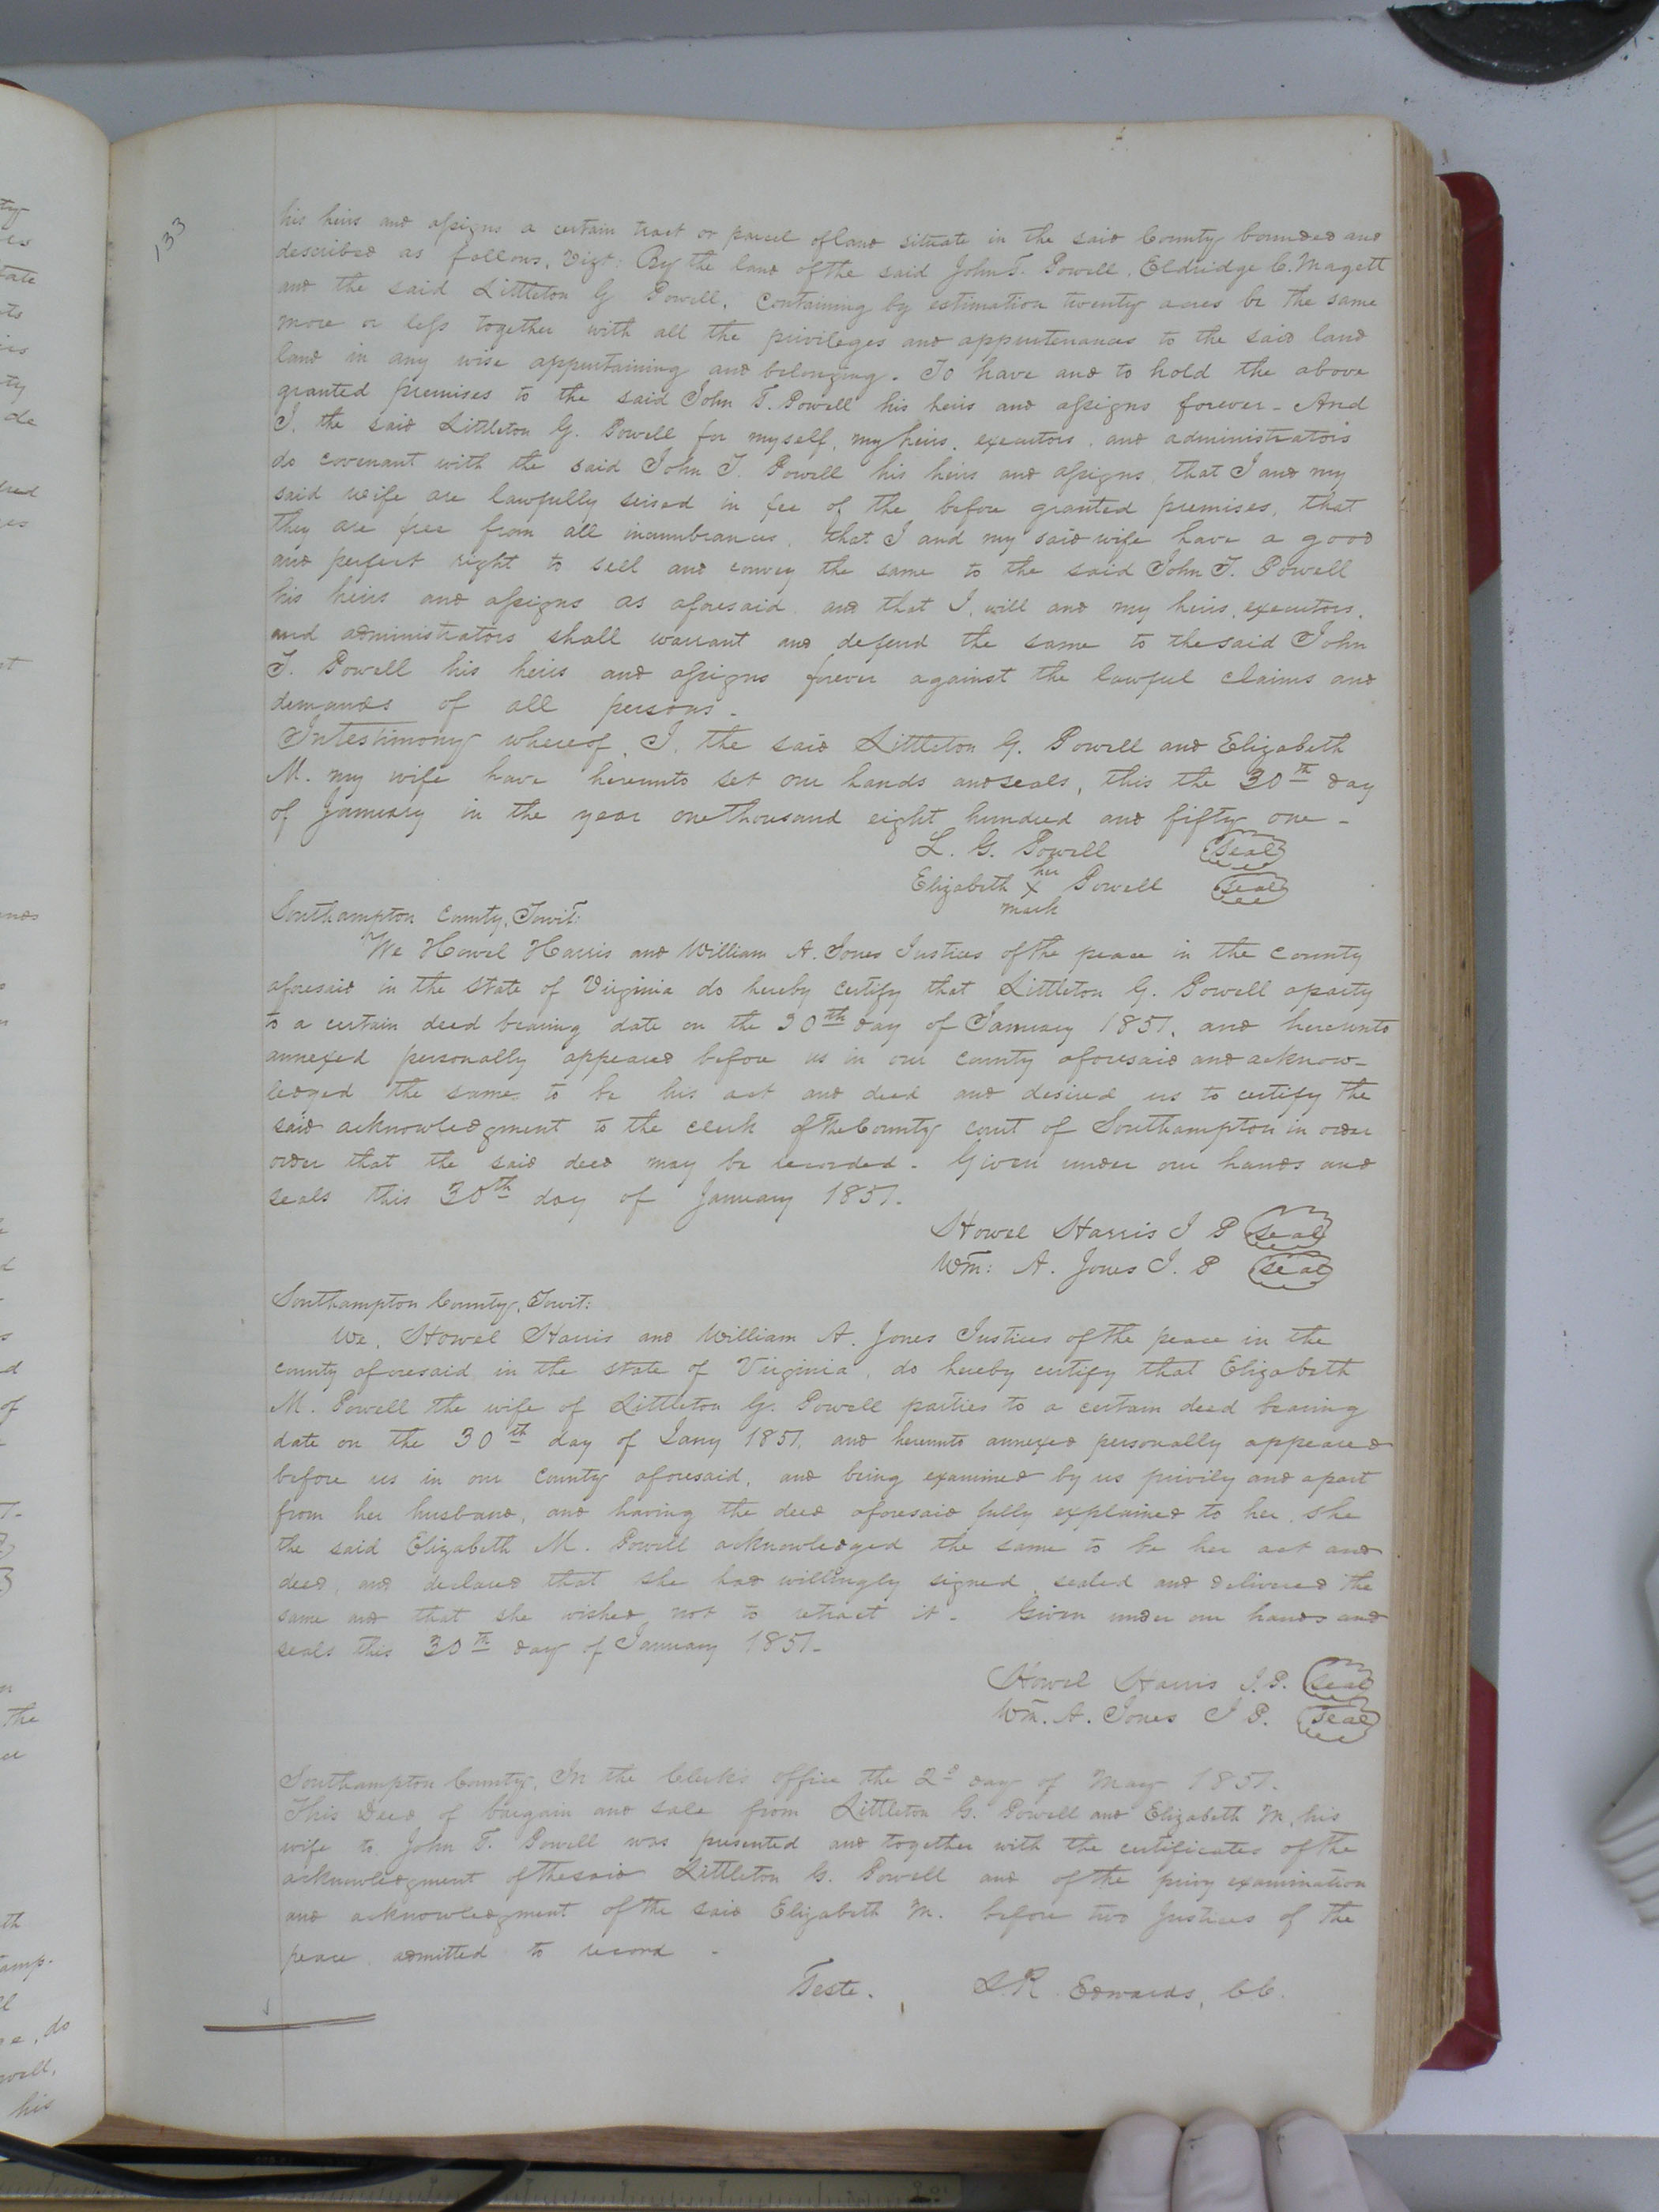 133
his heirs and assigns a certain tract or parcel of land situate in the said County bounded and
described as follows, Vizt: By the land of the said John T. Powell, Eldridge C. Magett
and the said Littleton G Powell, Containing by estimation twenty acres be the same
more or less together with all the privileges and appurtenances to the said land
land in any wise appurtaining and belonging. To have and to hold the above
granted premises to the said John T. Powell his heirs and assigns forever - And
I, the said Littleton G. Powell for myself, my heirs, executors, and administrators
do covenant with the said John T. Powell his heirs and assigns, that I and my
said wife are lawfully seised in fee of the before granted premises, that
they are free from all incumbrances, that I and my said wife have a good
and perfect right to sell and convey the same to the said John T. Powell
his heirs and assigns as aforesaid and that I, will and my heirs, executors,
and administrators shall warrant and defend the same to the said John
T. Powell his heirs and assigns forever against the lawful claims and
demands of all persons -
In testimony whereof, I, the said Littleton G. Powell and Elizabeth
M. my wife have hereunto set our hands and seals, this the 30th day
of January in the year one thousand eight hundred and fifty one -
L. G. Powell Seal
her
Elizabeth x Powell Seal
mark
Southampton County, Towit:
We Howel Harris and William A. Jones Justices of the peace in the County
aforesaid in the State of Virginia do hereby certify that Littleton G. Powell a party
to a certain deed bearing date on the 30th day of January 1851, and hereunto
annexed personally appeared before us in our county aforesaid and acknow-
ledged the same to be his act and deed and desired us to certify the
said acknowledgment to the clerk of the County court of Southampton in order
order that the said deed may be recorded - Given under our hands and
seals this 30th day of January 1851.
Howel Harris J P Seal
Wm: A. Jones J. P Seal
Southampton County, Towit:
We, Howel Harris and William A. Jones Justices of the peace in the
county aforesaid, in the state of Virginia, do hereby certify that Elizabeth
M. Powell the wife of Littleton G. Powell parties to a certain deed bearing
date on the 30th day of Jany 1851, and hereunto annexed personally appeared
before us in our County aforesaid, and being examined by us privily and apart
from her husband, and having the deed aforesaid fully explained to her, she
the said Elizabeth M. Powell acknowledged the same to be her act and
deed, and declared that she had willingly signed, sealed and delivered the
same and that she wished not to retract it - Given under our hands and
seals this 30th day of January 1851-
Howel Harris J. P. Seal
Wm. A. Jones J P. Seal
Southampton County, In the Clerk's office the 2d day of May 1851.
This Deed of bargain and sale from Littleton G. Powell and Elizabeth M, his
wife to John T. Powell was presented and together with the certificates of the
acknowledgment of the said Littleton G. Powell and of the privy examination
and acknowledgment of the said Elizabeth M. before two Justices of the
peace, admitted to record -
Teste. L. R. Edwards, CC.